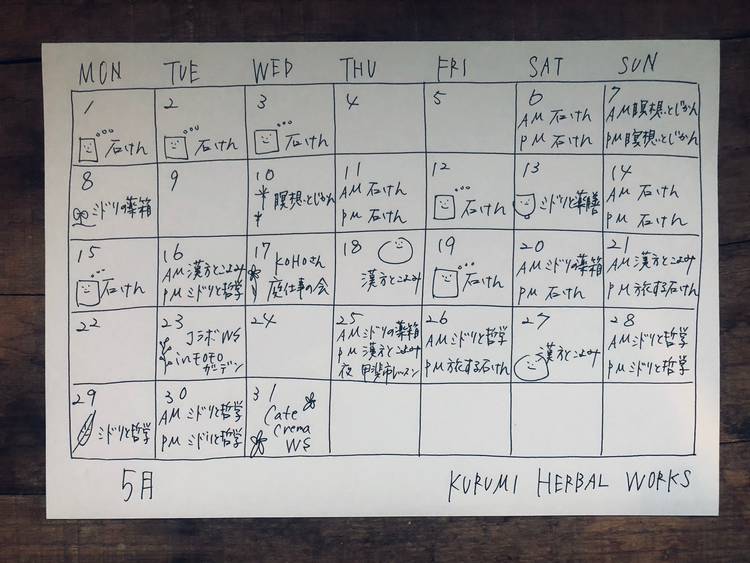 MON TUE WED THU FRI SAT SUN
1
石けん
2
石けん
3
石けん
4
5
6
AM 石けん
PM 石けん
7
AM 瞑想とじかん
PM 瞑想とじかん
8
ミドリの薬箱
9
10
瞑想とじかん
11
AM 石けん
PM 石けん
12
石けん
13
ミドリと薬膳
14
AM 石けん
PM 石けん
15
石けん
16
AM 漢方とこよみ
PM ミドリと哲学
17
KOHOさん
庭仕事の会
18
漢方とこよみ
19
石けん
20
AM ミドリの薬箱
PM 石けん
21
AM 漢方とこよみ
PM 旅する石けん
22
23
コラボWS
in モトモト
ガーデン
24
25
AM ミドリの薬箱
PM 漢方とこよみ
夜 甲斐市レッスン
26
AM ミドリと哲学
PM 旅する石けん
27
漢方とこよみ
28
AM ミドリと哲学
PM ミドリと哲学
29
ミドリと哲学
30
AM ミドリと哲学
PM ミドリと哲学
31
Cafe
Crema
WS
5月
KURUMI HERBAL WORKS